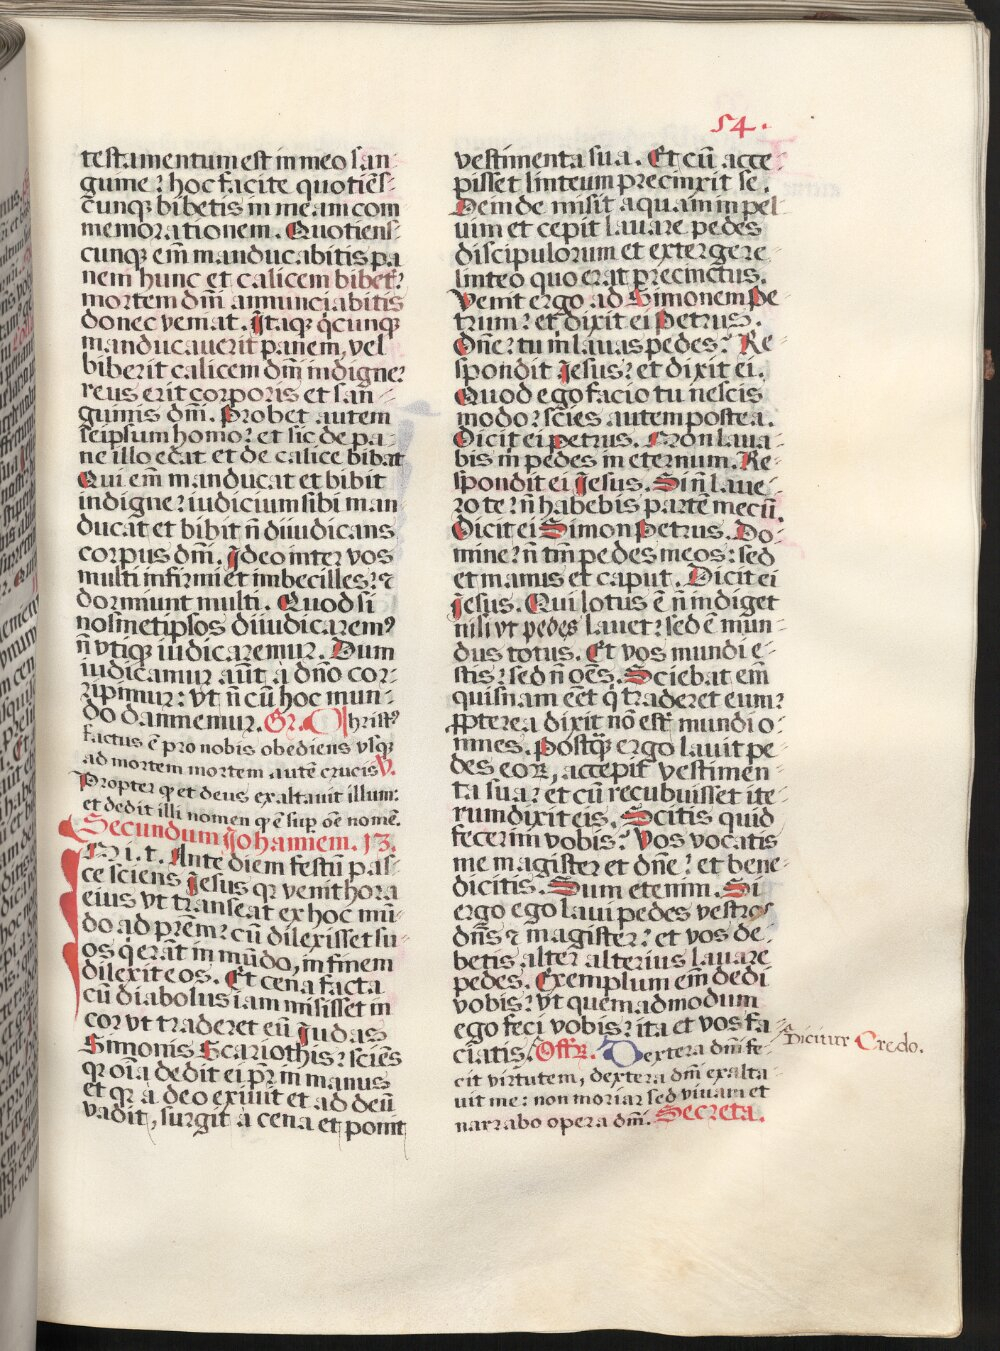 54.
testamentum est in meo san-
guine: hoc facite quotiēs-
cunq; bibetis in meam com
memorationem. Quotiens-
cunque em̄ manducabitis pa
nem hunc et calicem bibet:
mortem dn̄i annunciabitis
donec veniat. Itaq; q̇cunq;
manducauerit panem, vel
biberit calicem dn̄i indigne:
reus erit corporis et san-
guinis dn̄i. Probet autem
seipsum homo: et sic de pa-
ne illo edat et de calice bibat
Qui em̄ manducat et bibit
indigne: iudicium sibi man
ducat et bibit n̄ diiudicans
corpus dn̄i. Ideo inter vos
multi infirmi et imbecilles: ⁊
dormiunt multi. Quod si
nosmetipsos diiudicarem⁹
n̄ vtiq; iudicaremur. Dum
iudicamur aūt à dn̄o cor-
ripimur: vt n̄ cū hoc mun-
do damnemur. Gr. Christ⁹
factus ē pro nobis obediens vsq;
ad mortem mortem autē crucis V.
Propter qꝫ et deus exaltauit illum:
et dedit illi nomen qꝫ ē sup̱ oē nomē.
Secundum Johannem. 13.
In i. t. Ante diem festū pas-
ce sciens Jesus qꝛ venit hora
eius vt transeat ex hoc mū-
do ad prēm: cū dilexisset su-
os q̇ erāt in mūdo, in finem
dilexit eos. Et cena facta
cū diabolus iam misisset in
cor vt traderet eū Judas
Simonis Scariothis: sciēs
qꝛ oīa dedit ei pr̄ in manus
et qꝛ a deo exiuit et ad deū
vadit, surgit à cena et ponit
vestimenta sua. Et cū acce
pisset linteum precinxit se.
Deinde misit aquam in pel-
uim et cepit lauare pedes
discipulorum et extergere
linteo quo erat precinctus.
Venit ergo ad Simonem Pe-
trum: et dixit ei Petrus.
Dn̄e: tu m̄ lauas pedes? Re-
spondit Jesus: et dixit ei.
Quod ego facio tu nescis
modo: scies autem postea.
Dicit ei Petrus. Nōn laua-
bis m̄ pedes in eternum. Re-
spondit ei Jesus. Si n̄ laue-
ro te: n̄ habebis partē mecū.
Dicit ei Simon Petrus. Do-
mine: n̄ tm̄ pedes meos: sed
et manus et caput. Dicit ei
Jesus. Qui lotus ē n̄ indiget
nisi vt pedes lauet: sed ē mun-
dus totus. Et vos mundi e-
stis: sed n̄ oēs. Sciebat em̄
quisnam eēt q̇ traderet eum:
ꝓpterea dixit nō estis mundi o-
mnes. Postq̄ ergo lauit pe-
des eoꝝ, accepit vestimen-
ta sua: et cū recubuisset ite-
rum dixit eis. Scitis quid
fecerim vobis? Vos vocatis
me magister et dn̄e: et bene-
dicitis. Sum etenim. Si
ergo ego laui pedes vestros
dn̄s ⁊ magister: et vos de-
betis alter alterius lauare
pedes. Exemplum em̄ dedi
vobis: vt quemadmodum
ego feci vobis: ita et vos fa-
ciatis. Offꝝ. Dextera dn̄i fe-
cit virtutem, dextera dn̄i exalta-
uit me: non moriar sed viuam et
narrabo opera dn̄i. Secreta.
Dicitur Credo.